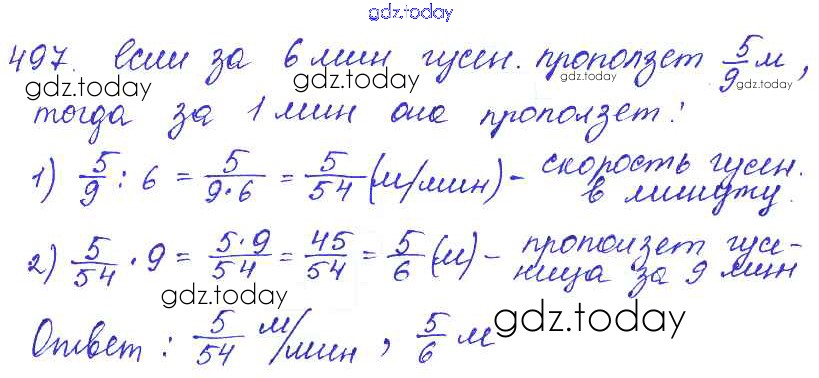 gdz.today
497. Если за 6 мин гусен. проползет 5/9 м,
gdz.today gdz.today gdz.today
тогда за 1 мин она проползет:
1) 5/9 : 6 = 5/9·6 = 5/54 (м/мин) – скорость гусен.
в минуту.
2) 5/54 · 9 = 5·9/54 = 45/54 = 5/6 (м) – проползет гусе-
ница за 9 мин
gdz.today gdz.today
Ответ: 5/54 м/мин, 5/6 м